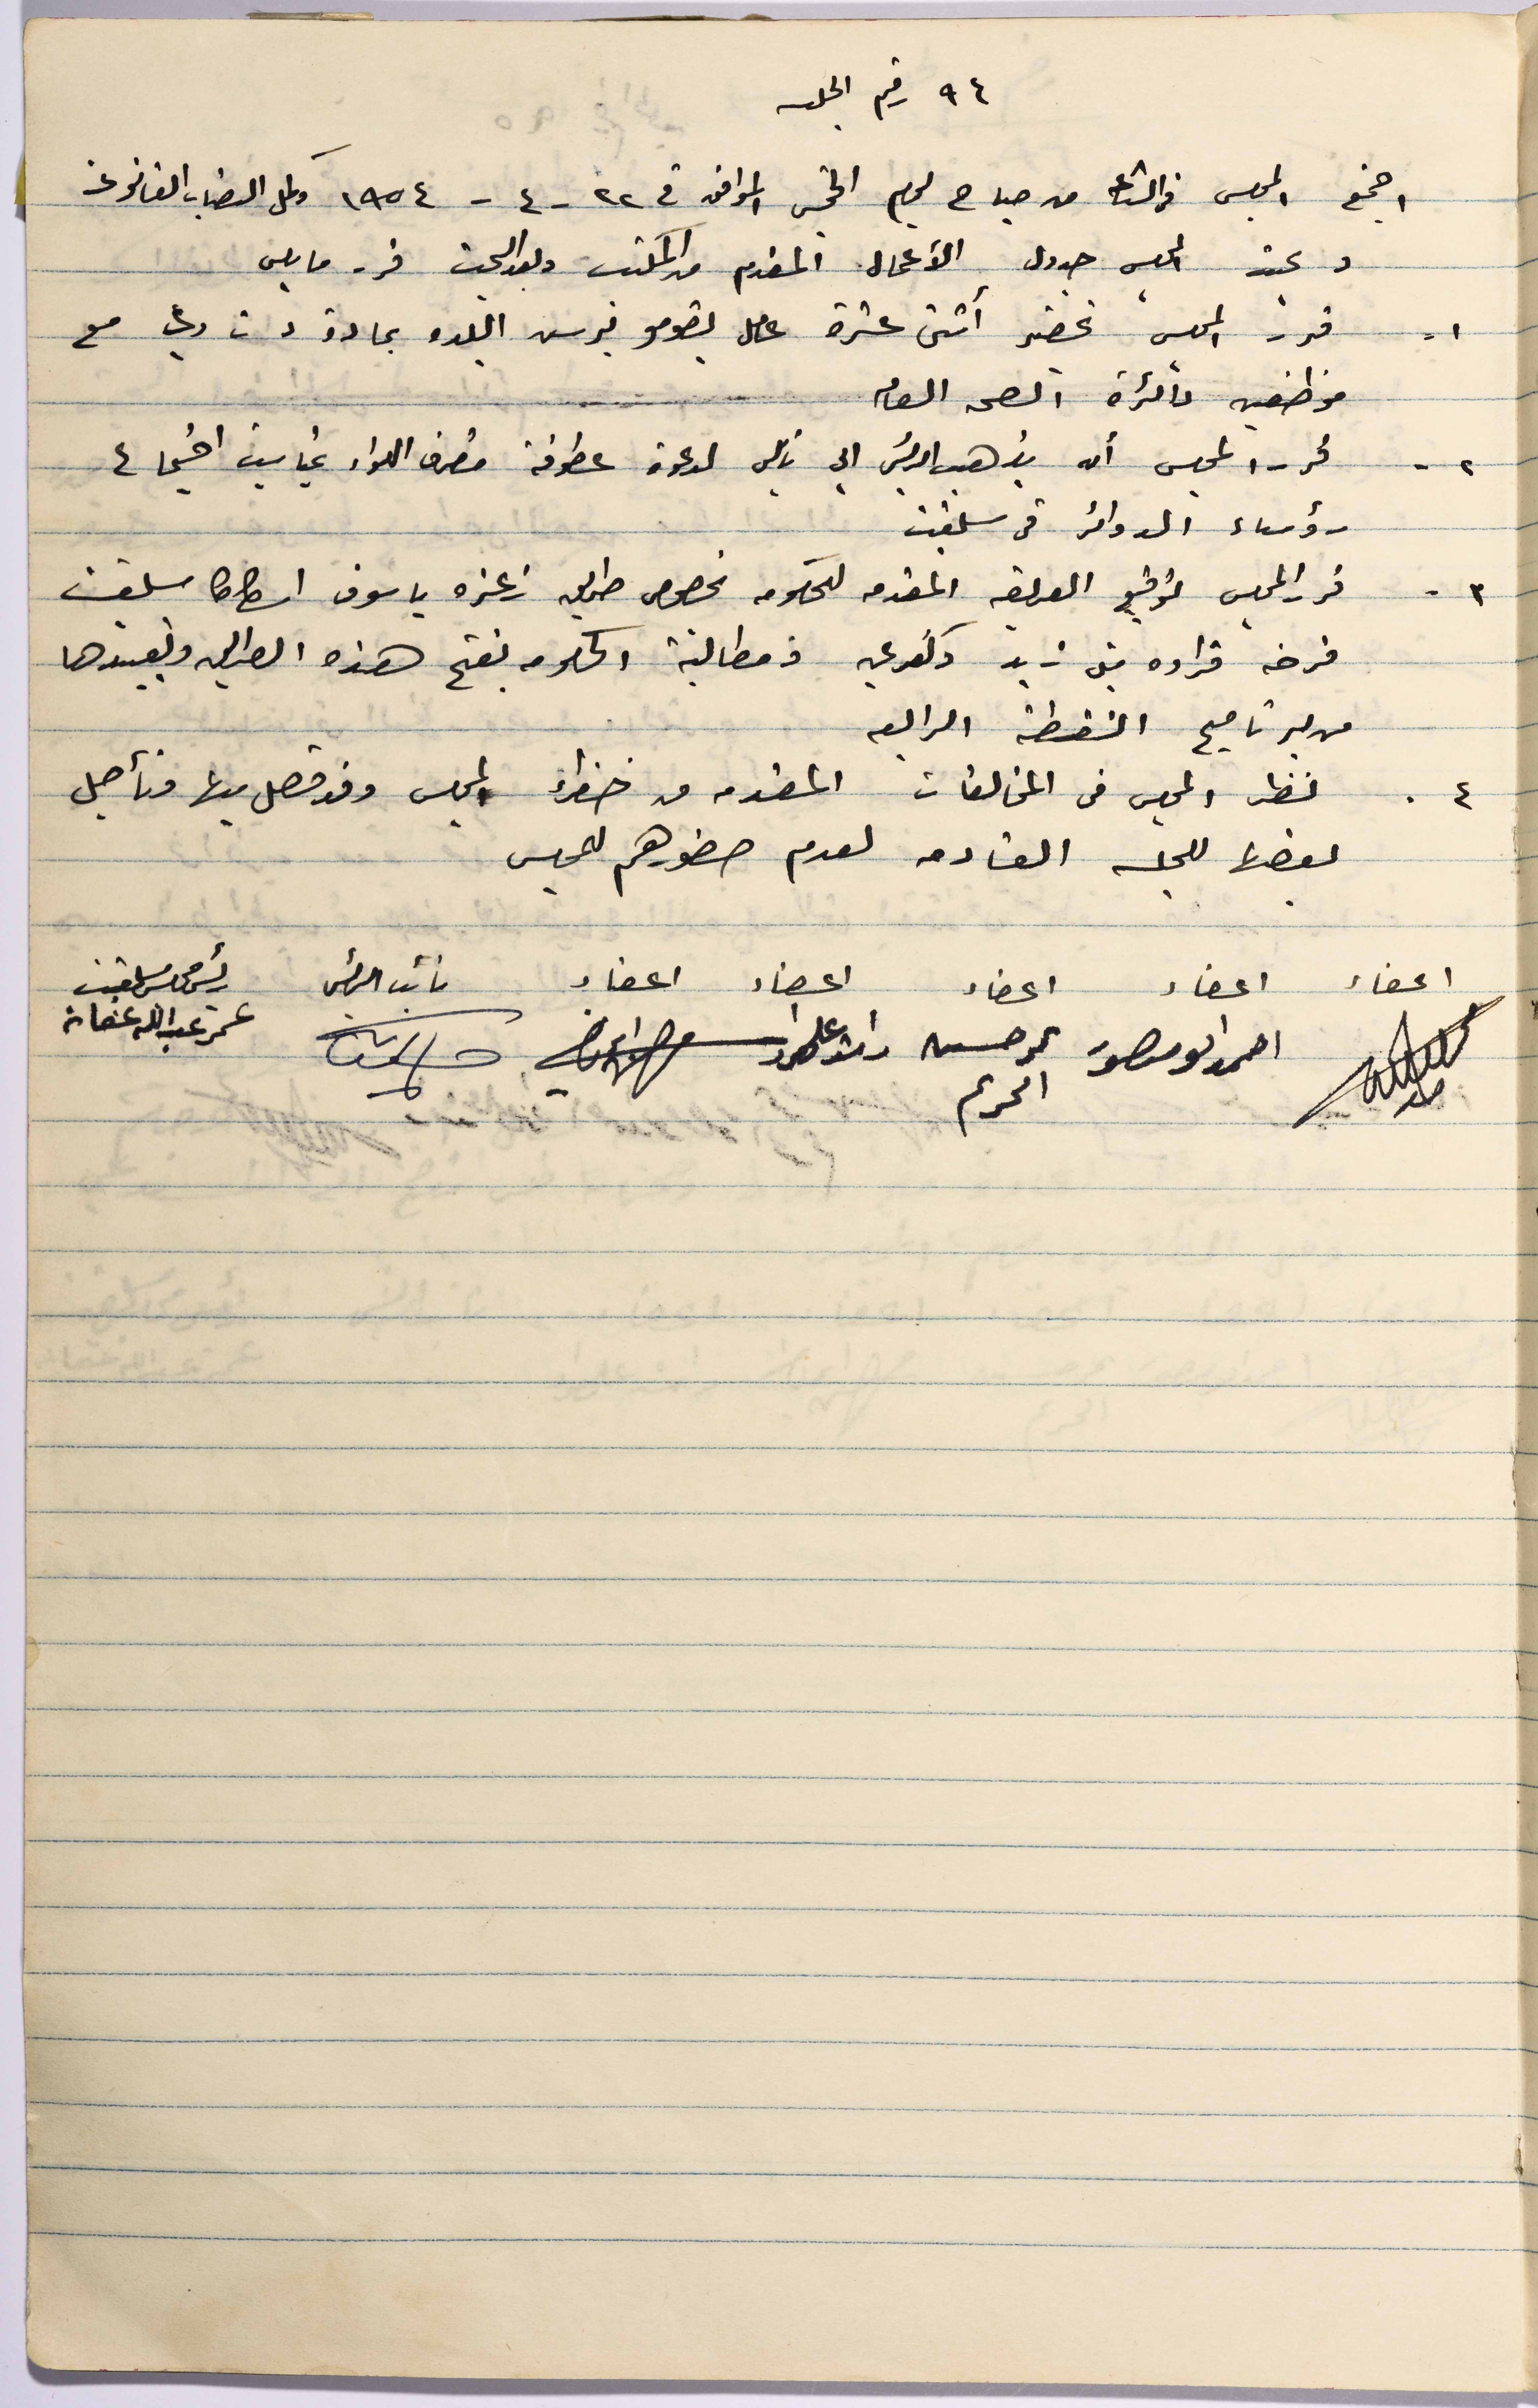 ٩٤ رقم الجلسه
اجتمع المجلس في الساعه من صباح يوم الخميس الموافق في ٢٢ - ٤ - ١٩٥٤ وكمل النصاب القانوني
وبحث المجلس جدول الأعمال المقدم من المكتب وبعد البحث قرر ما يلي
١- قرر المجلس تحضير أثنى عشرة عامل يقومو برس البلده بمادة د ت دي مع
موظفين دائرة الصحه العامه
٢- قرر المجلس أن يذهب الرئيس الى نابلس لدعوة عطوفة متصرف اللواء بمناسبة اجتماع
رؤساء الدوائر في سلفيت
٣- قرر المجلس توقيع العريضه المقدمه للحكومه بخصوص طريق زعتره ياسوف اسكاكا سلفيت
فرخه قراوه بني زيد وكفرعين في مطالبة الحكومه بفتح هذه الطريق وتعبيدها
من برنامج النقطة الرابعه
٤. نظر المجلس في المخالفات المقدمه من خفراء المجلس وقد فصل بها وتأجل
بعضها للجلسه القادمه لعدم حضورهم للمجلس
اعضاء اعضاء اعضاء اعضاء اعضاء نائب الرئيس رئيس مجلس سلفيت
احمد ابو منصور حسين عمر عبدالله عفانه